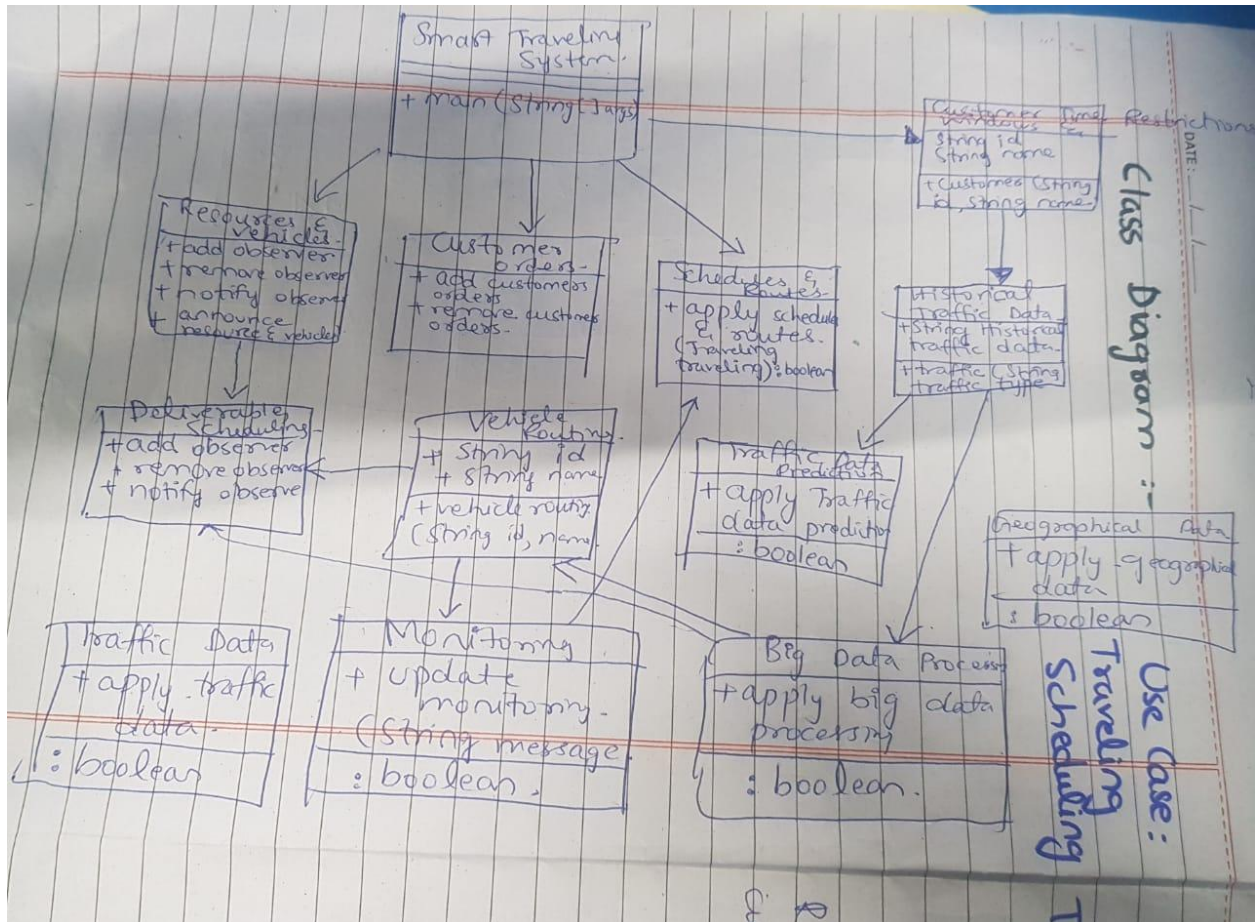 Smart Traveling
System.
+ main (String [] args)
Customer Time
Windows & Restrictions
String id
String name
+ Customer (String
id, String name)
DATE:
Class Diagram :-
Resources &
Vehicles.
+ add observer
+ remove observer
+ notify observe
+ announce
resource & vehicles
Customer
orders.
+ add customers
orders
+ remove customer
orders.
Schedules &
Routes.
+ apply schedule
& routes.
(Traveling
traveling) : boolean
Historical
Traffic Data
+ String Historical
traffic data.
+ traffic (String
traffic type
Deliverable
Scheduling
+ add observer
+ remove observer
+ notify observe
Vehicle
Routing.
+ String id
+ String name
+ vehicle routing
(String id, name)
Traffic Data
Prediction
+ apply Traffic
data prediction
: boolean
Geographical Data
+ apply geographical
data
: boolean
Traffic Data
+ apply traffic
data.
: boolean
Monitoring
+ update
monitoring.
(String message
: boolean.
Big Data Process
+ apply big data
processing
: boolean.
Use Case:
Traveling
Scheduling